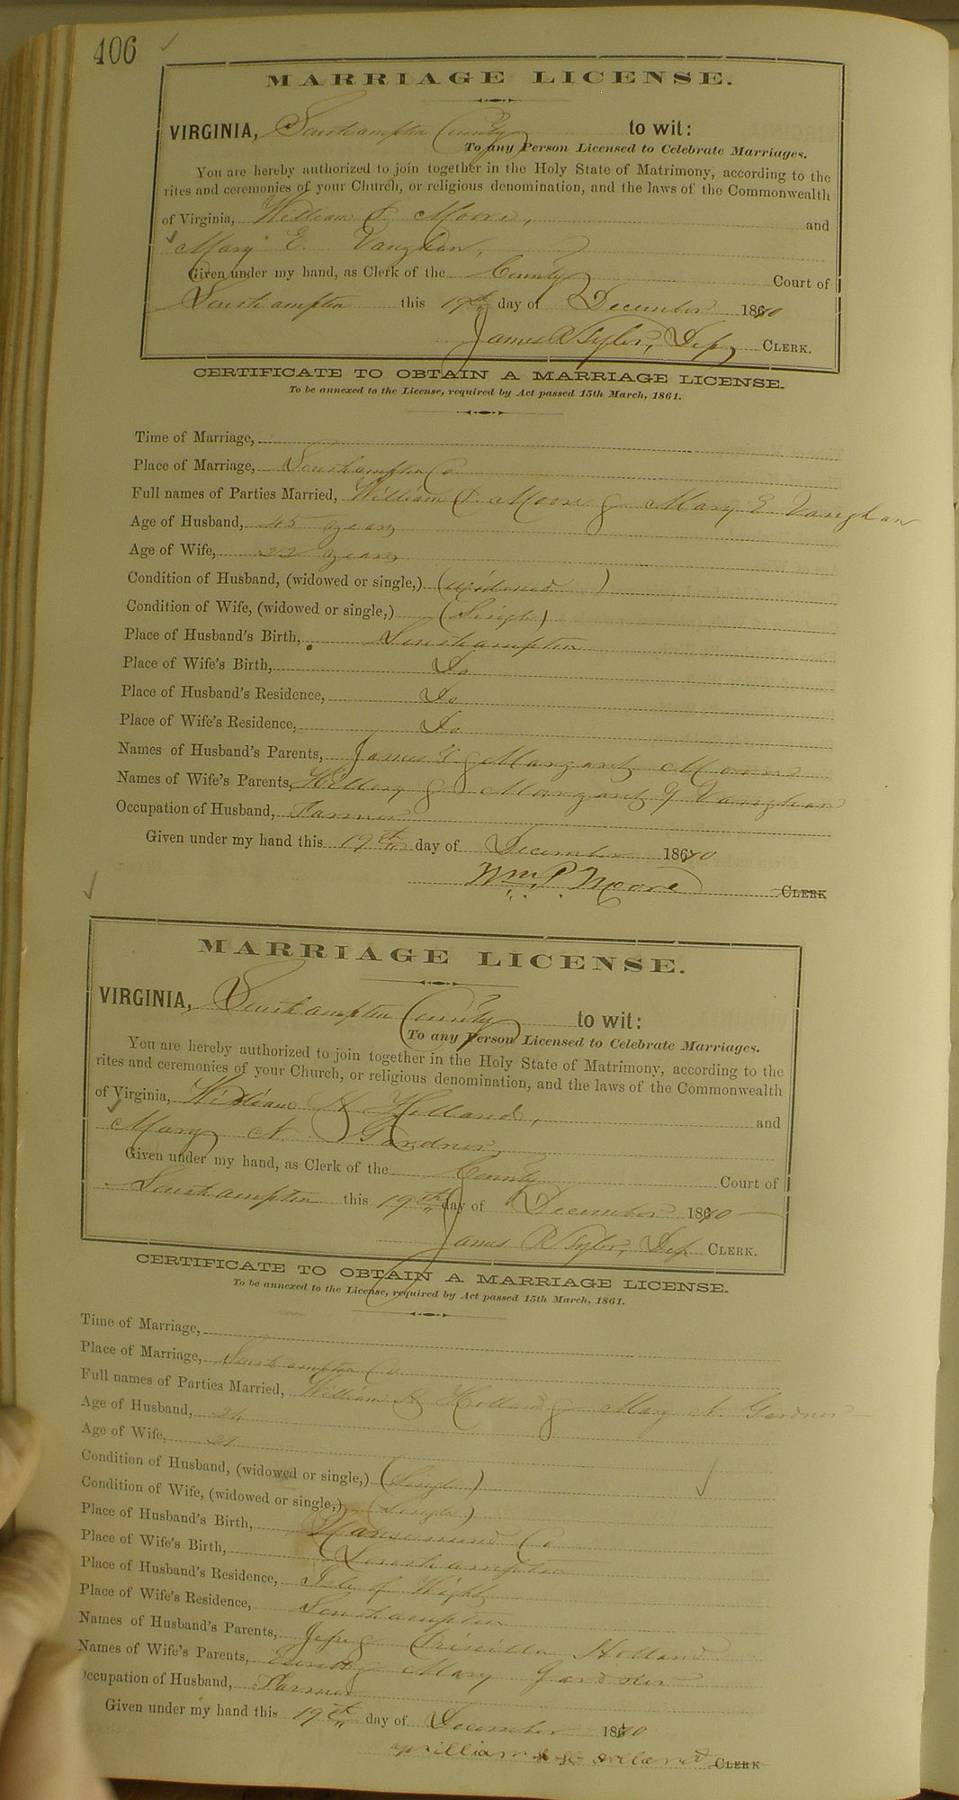 406
MARRIAGE LICENSE.
VIRGINIA, Southampton County to wit:
To any Person Licensed to Celebrate Marriages.
You are hereby authorized to join together in the Holy State of Matrimony, according to the
rites and ceremonies of your Church, or religious denomination, and the laws of the Commonwealth
of Virginia, William Moore, and
Mary E. Vaughan,
Given under my hand, as Clerk of the County Court of
Southampton this 19th day of December 1870
James R Tyler, Dep CLERK.
CERTIFICATE TO OBTAIN A MARRIAGE LICENSE.
To be annexed to the License, required by Act passed 15th March, 1861.
Time of Marriage,
Place of Marriage, Southampton Co
Full names of Parties Married, William Moore & Mary E Vaughan
Age of Husband, 45 years
Age of Wife, 22 years
Condition of Husband, (widowed or single,) (widowed)
Condition of Wife, (widowed or single,) (Single)
Place of Husband's Birth, Southampton
Place of Wife's Birth, Do
Place of Husband's Residence, Do
Place of Wife's Residence, Do
Names of Husband's Parents, James & Margaret Moore
Names of Wife's Parents, & Margaret Vaughan
Occupation of Husband, Farmer
Given under my hand this 19th day of December 1870
Wm. P. Moore CLERK
MARRIAGE LICENSE.
VIRGINIA, Southampton County to wit:
To any Person Licensed to Celebrate Marriages.
You are hereby authorized to join together in the Holy State of Matrimony, according to the
rites and ceremonies of your Church, or religious denomination, and the laws of the Commonwealth
of Virginia, William H Holland, and
Mary A. Gardner,
Given under my hand, as Clerk of the County Court of
Southampton this 19th day of December 1870
James R Tyler, Dep CLERK.
CERTIFICATE TO OBTAIN A MARRIAGE LICENSE.
To be annexed to the License, required by Act passed 15th March, 1861.
Time of Marriage,
Place of Marriage, Southampton Co
Full names of Parties Married, William H Holland & Mary A. Gardner
Age of Husband, 24
Age of Wife, 21
Condition of Husband, (widowed or single,) (Single)
Condition of Wife, (widowed or single,) (Single)
Place of Husband's Birth, Nansemond Co
Place of Wife's Birth, Southampton
Place of Husband's Residence, Isle of Wight
Place of Wife's Residence, Southampton
Names of Husband's Parents, & Priscilla Holland
Names of Wife's Parents, & Mary Gardner
Occupation of Husband, Farmer
Given under my hand this 19th day of December 1870
William H Holland CLERK